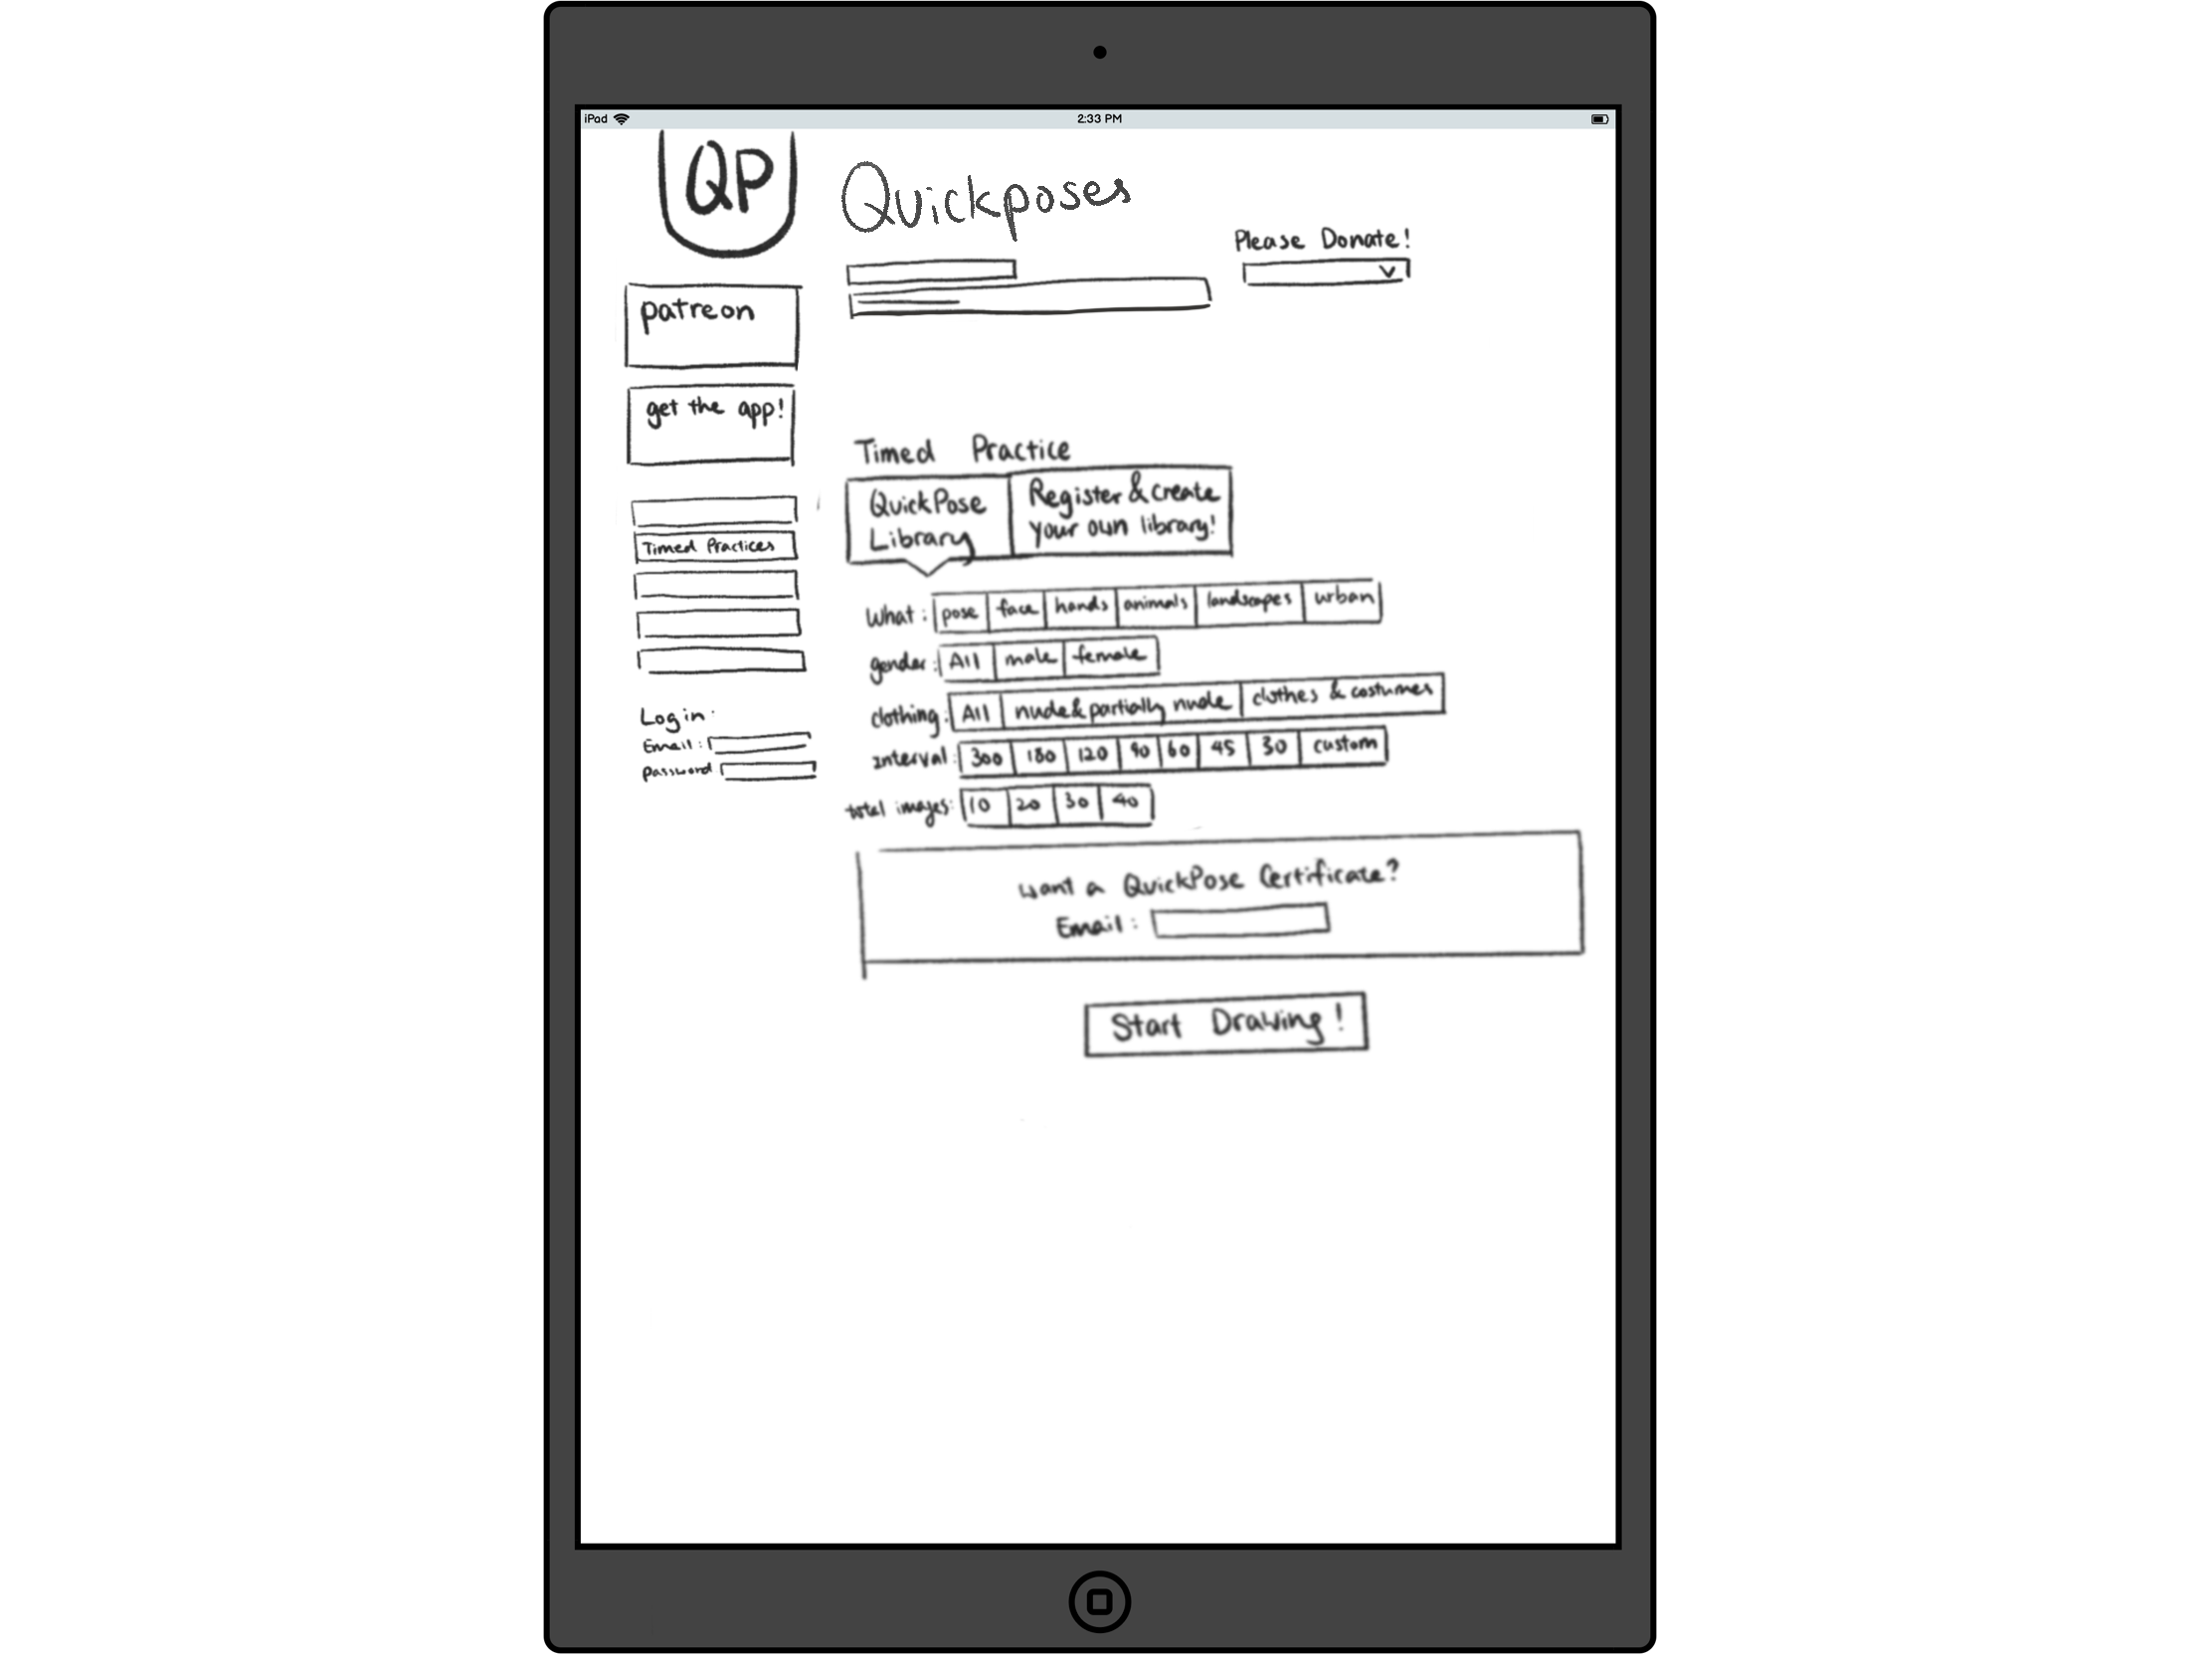 iPad 2:33 PM
QP
Quickposes
Please Donate!
patreon
get the app!
Timed Practices
Login:
Email:
Password
Timed Practice
QuickPose Library
Register & create your own library!
What: pose face hands animals landscapes urban
gender: All male female
clothing: All nude & partially nude clothes & costumes
Interval: 300 180 120 90 60 45 30 custom
total images: 10 20 30 40
Want a QuickPose Certificate?
Email:
Start Drawing!